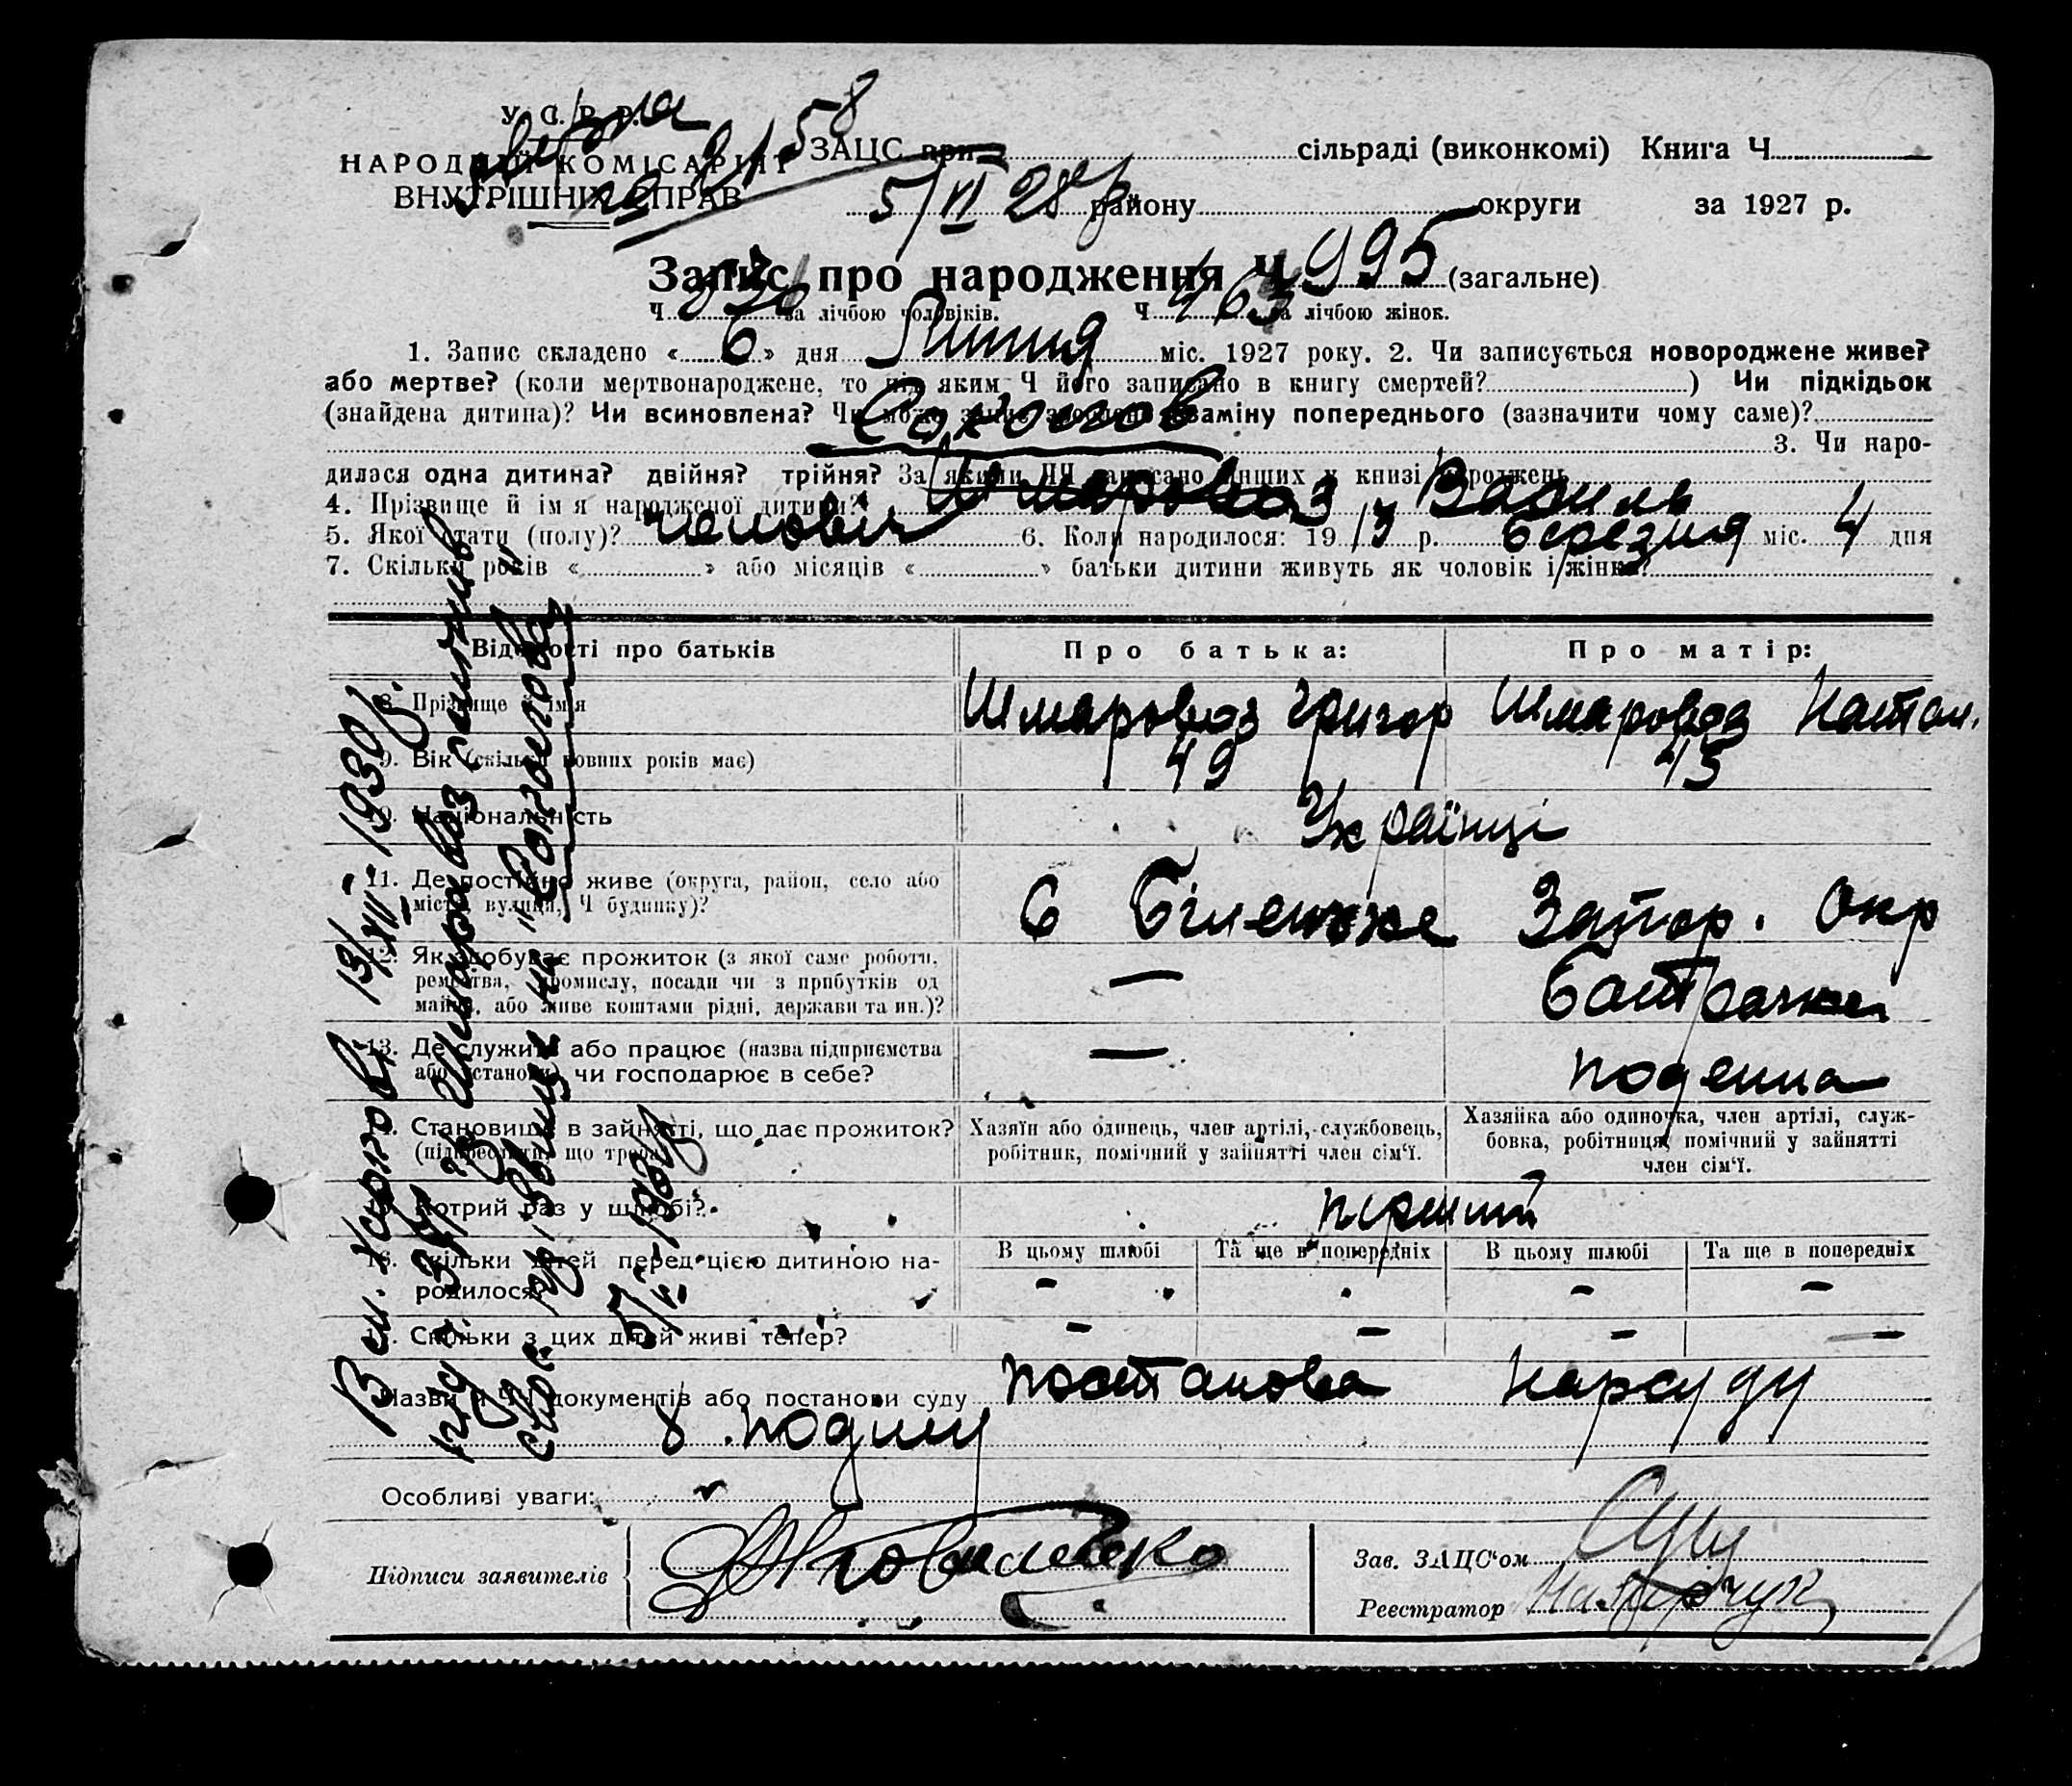 У. С. Р. Р.
НАРОДНІЙ КОМІСАРІЯТ
ВНУТРІШНІХ СПРАВ
58
ЗАЦС при сільраді (виконкомі) Книга Ч.
5/VI 28 р району округи за 1927 р.
Запис про народження Ч 995 (загальне)
Ч. за лічбою чоловіків. Ч. 463 за лічбою жінок.
1. Запис складено « 6 » дня Липня міс. 1927 року. 2. Чи записується новороджене живе?
або мертве? (коли мертвонароджене, то під яким Ч його записано в книгу смертей? ) Чи підкідьок
(знайдена дитина)? Чи всиновлена? Чи заміну попереднього (зазначити чому саме)?
Соколов
3. Чи наро-
дилася одна дитина? двійня? трійня? За якими ЧЧ записано инших у книзі народжень
4. Прізвище й ім я народженої дитини? Шмаровоз Василь
5. Якої стати (полу)? чоловіч 6. Коли народилося: 19 13 р. березня міс. 4 дня
7. Скільки років « » або місяців « » батьки дитини живуть як чоловік і жінка?
Відомості про батьків Про батька: Про матір:
8. Прізвище й ім'я Шмаровоз Григор Шмаровоз Настас.
9. Вік (скільки повних років має) 49 45
10. Національність Українці
11. Де постійно живе (округа, район, село або
місто, вулиця, Ч будинку)? С Біленьке Запор. Окр
12. Як здобуває прожиток (з якої саме роботи,
ремества, промислу, посади чи з прибутків од
майна, або живе коштами рідні, держави та ин.)? — Батрачка
13. Де служить або працює (назва підприємства
або установи) чи господарює в себе? — поденна
14. Становище в зайнятті, що дає прожиток?
(підкреслити, що треба)
Хазяїн або одинець, член артілі, службовець,
робітник, помічний у зайнятті член сім'ї.
Хазяйка або одиночка, член артілі, служ-
бовка, робітниця, помічний у зайнятті
член сім'ї.
15. Котрий раз у шлюбі? перший
16. Скільки дітей перед цією дитиною на-
родилося?
В цьому шлюбі Та ще в попередніх В цьому шлюбі Та ще в попередніх
- - -
17. Скільки з цих дітей живі тепер? - - - -
Назви й ЧЧ документів або постанови суду постанова Нарсуду
8. поділу
Особливі уваги:
Підписи заявителів
Зав. ЗАЦС'ом
Реестратор
13/XII-1930 р.
Шмаровоз
прізвище на "Соколов"